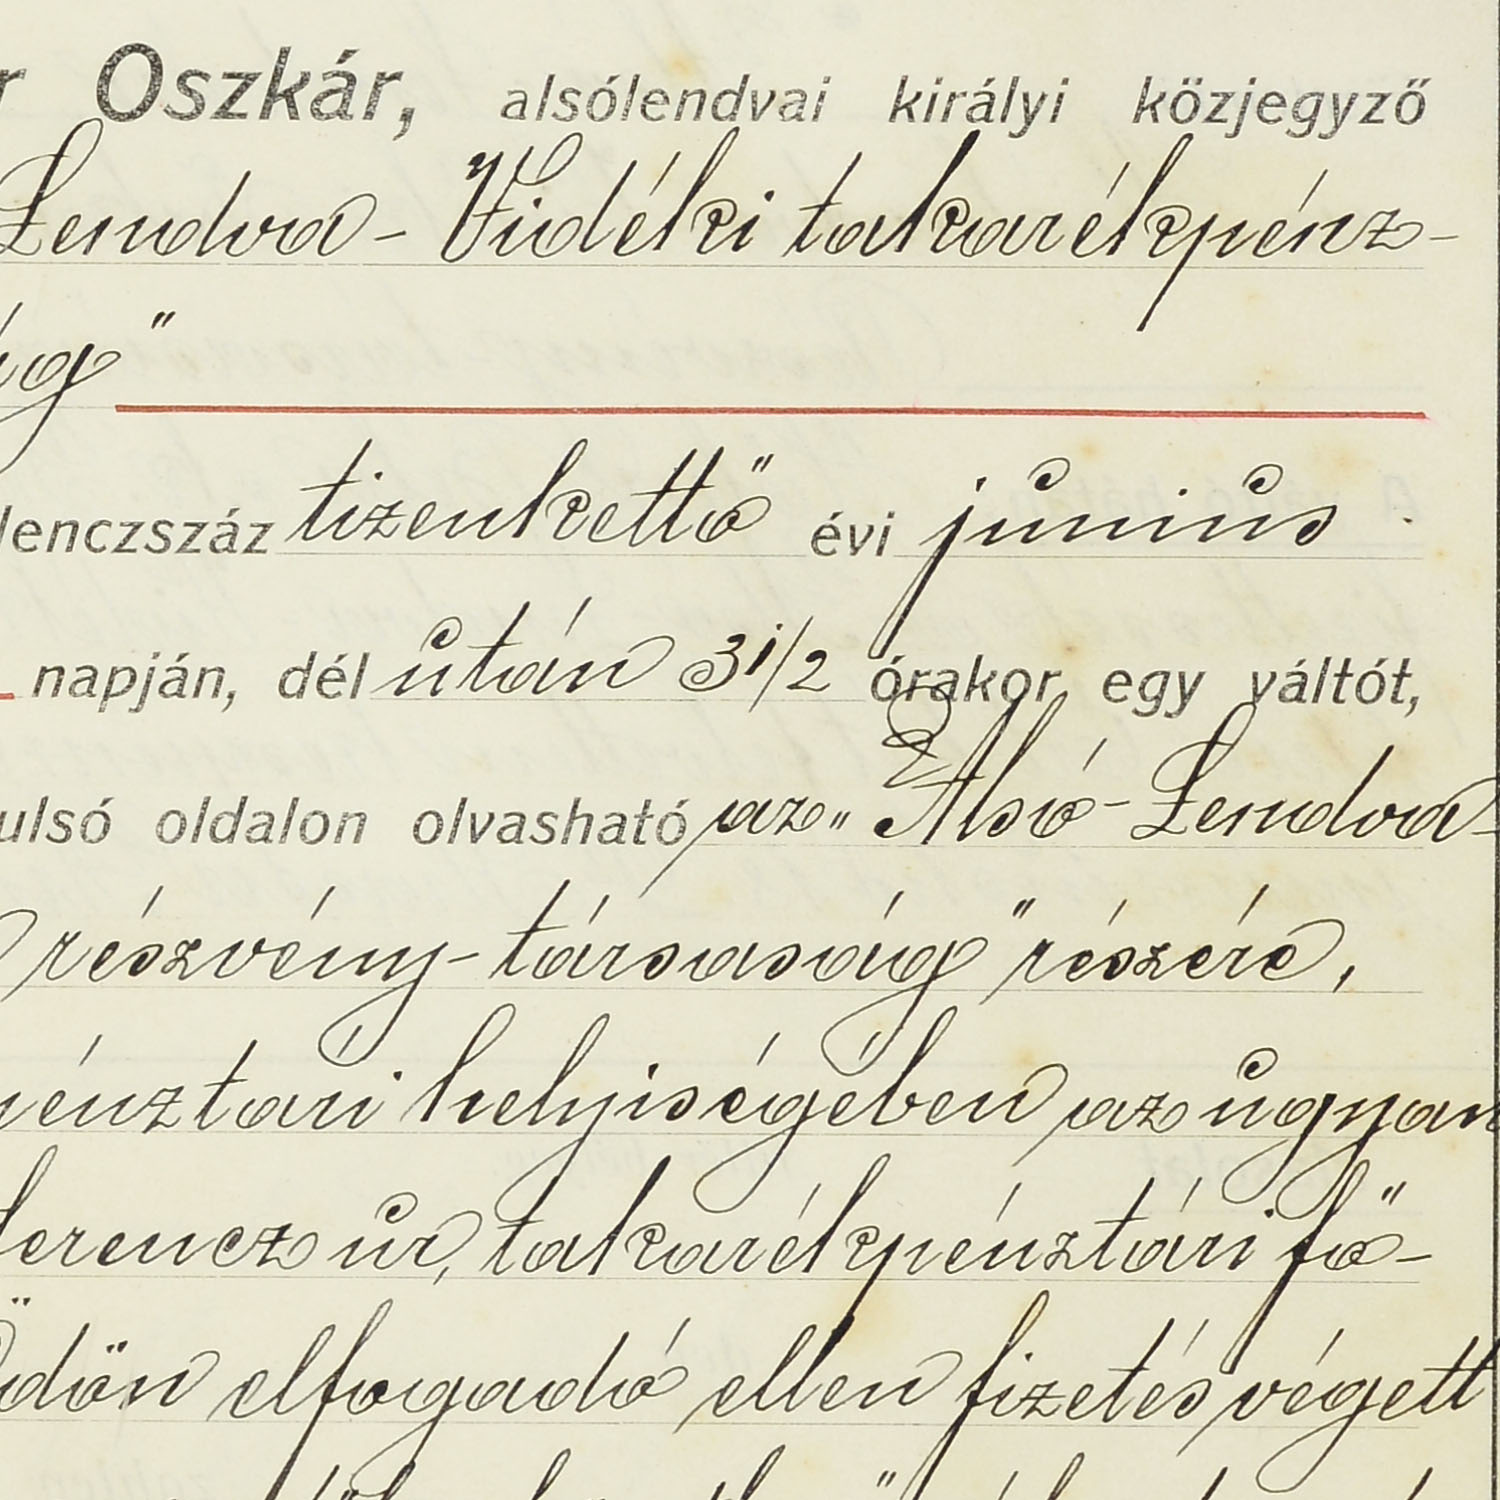 r Oszkár, alsólendvai királyi közjegyző
Lendva-Vidéki takarékpénz-
g"
lenczszáz tizenkettő évi június
napján, dél után 3 1/2 órakor egy váltót,
ulsó oldalon olvasható az „Alsó-Lendva-
részvény-társaság" részére,
pénztári helyiségében az ugyan
Ferencz úr, takarékpénztári fő-
Ödön elfogadó ellen fizetés végett